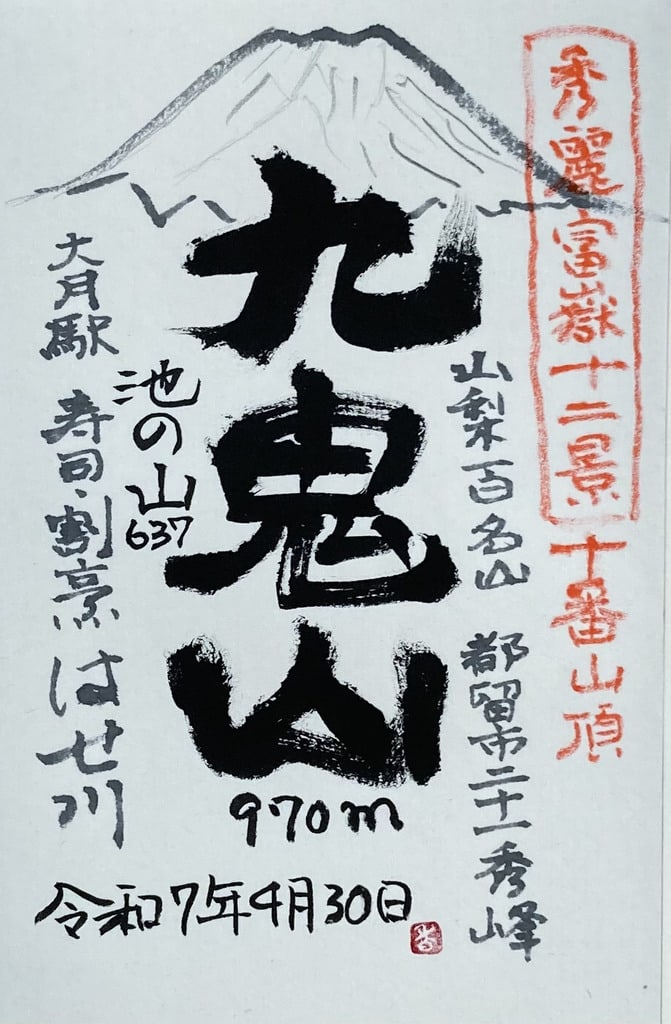 秀麗富嶽十二景 十番山頂
山梨百名山 都留市二十一秀峰
九鬼山
970m
池の山
637
大月駅 寿司・割烹 はせ川
令和7年4月30日